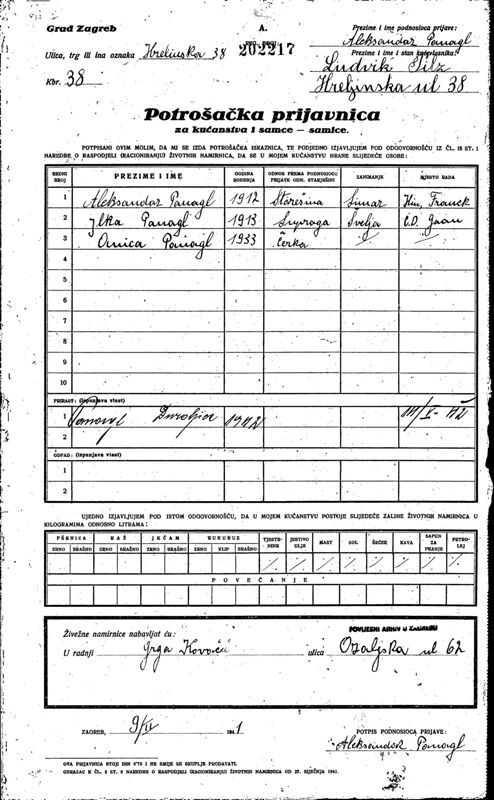 Grad Zagreb
A.
Prezime i ime podnosioca prijave:
Aleksandar Panagl
Ulica, trg ili ina oznaka Hreljinska 38
202217
Prezime i ime i stan kućevlasnika:
Ludvik Šilz
Kbr. 38
Hreljinska ul 38
Potrošačka prijavnica
za kućanstva i samce — samice.
POTPISANI OVIM MOLIM, DA MI SE IZDA POTROŠAČKA ISKAZNICA, TE PODJEDNO IZJAVLJUJEM POD ODGOVORNOŠĆU IZ ČL. 18 ST. 1
NAREDBE O RASPODJELI (RACIONIRANJU) ŽIVOTNIH NAMIRNICA, DA SE U MOJEM KUĆANSTVU HRANE SLIJEDEĆE OSOBE:
REDNI BROJ PREZIME I IME GODINA ROĐENJA ODNOS PREMA PODNOSIOCU PRIJAVE ODN. STARJEŠINI ZANIMANJE MJESTO RADA
1 Aleksandar Panagl 1912 Starešina Franck
2 Jlka Panagl 1913 Supruga Švelja
3 Anica Panagl 1933 Ćerka
4
5
6
7
8
9
10
PRIRAST: (ispunjava vlast)
1 1942
2
OTPAD: (ispunjava vlast)
1
2
UJEDNO IZJAVLJUJEM POD ISTOM ODGOVORNOŠĆU, DA U MOJEM KUĆANSTVU POSTOJE SLIJEDEĆE ZALIHE ŽIVOTNIH NAMIRNICA U
KILOGRAMIMA ODNOSNO LITRAMA:
PŠENICA RAŽ JEČAM KUKURUZ TJESTENINE JESTIVO ULJE MAST SOL ŠEĆER KAVA SAPUN ZA PRANJE PETROLEJ
ZRNO BRAŠNO ZRNO BRAŠNO ZRNO BRAŠNO ZRNO KLIP BRAŠNO
POVEĆANJE
Živežne namirnice nabavljat ću:
POVIJESNI ARHIV U ZAGREBU
U radnji Grga Kovačić ulica Ozaljska ul 62
ZAGREB, 9/II 1941
POTPIS PODNOSIOCA PRIJAVE:
Aleksandar Panagl
OVA PRIJAVNICA STOJI DIN 0'75 I NE SMIJE SE SKUPLJE PRODAVATI.
OBRAZAC K ČL. 2 ST. 2 NAREDBE O RASPODJELI (RACIONIRANJU) ŽIVOTNIH NAMIRNICA OD 27. SIJEČNJA 1941.